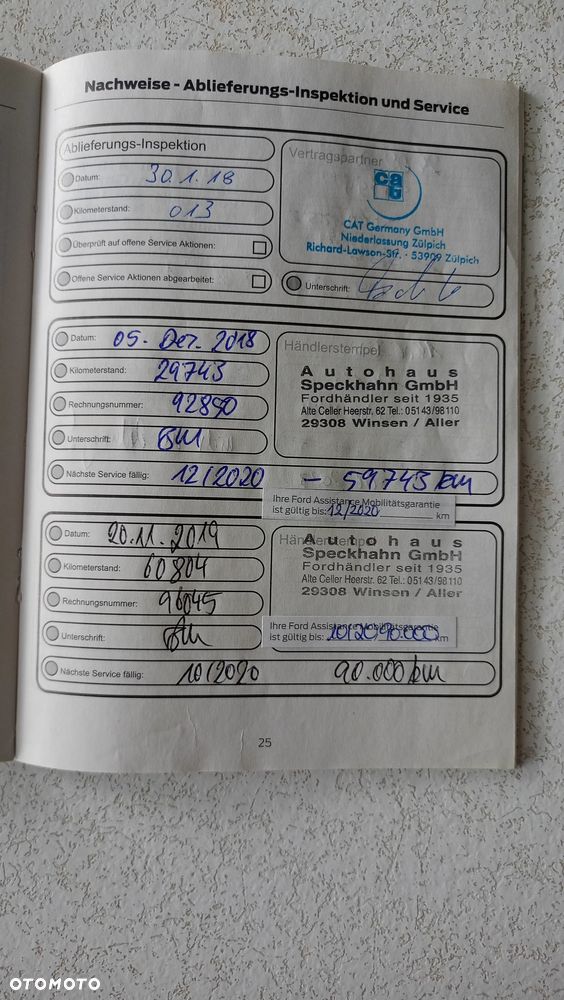 Nachweise - Ablieferungs-Inspektion und Service
Ablieferungs-Inspektion
Datum: 30.1.18
Kilometerstand: 013
Überprüft auf offene Service Aktionen:
Offene Service Aktionen abgearbeitet:
Vertragspartner
CAT Germany GmbH
Niederlassung Zülpich
Richard-Lawson-Str. · 53909 Zülpich
Unterschrift:
Datum: 05. Dez. 2018
Kilometerstand: 29743
Rechnungsnummer: 92890
Unterschrift:
Händlerstempel
Autohaus
Speckhahn GmbH
Fordhändler seit 1935
Alte Celler Heerstr. 62 Tel.: 05143/98110
29308 Winsen / Aller
Nächste Service fällig: 12/2020 – 59743 km
Ihre Ford Assistance Mobilitätsgarantie
ist gültig bis: 12/2020 km
Datum: 20.11.2019
Kilometerstand: 60804
Rechnungsnummer: 96045
Unterschrift:
Händlerstempel
Autohaus
Speckhahn GmbH
Fordhändler seit 1935
Alte Celler Heerstr. 62 Tel.: 05143/98110
29308 Winsen / Aller
Ihre Ford Assistance Mobilitätsgarantie
ist gültig bis: 10/20 90.000 km
Nächste Service fällig: 10/2020 90.000 km
25
OTOMOTO